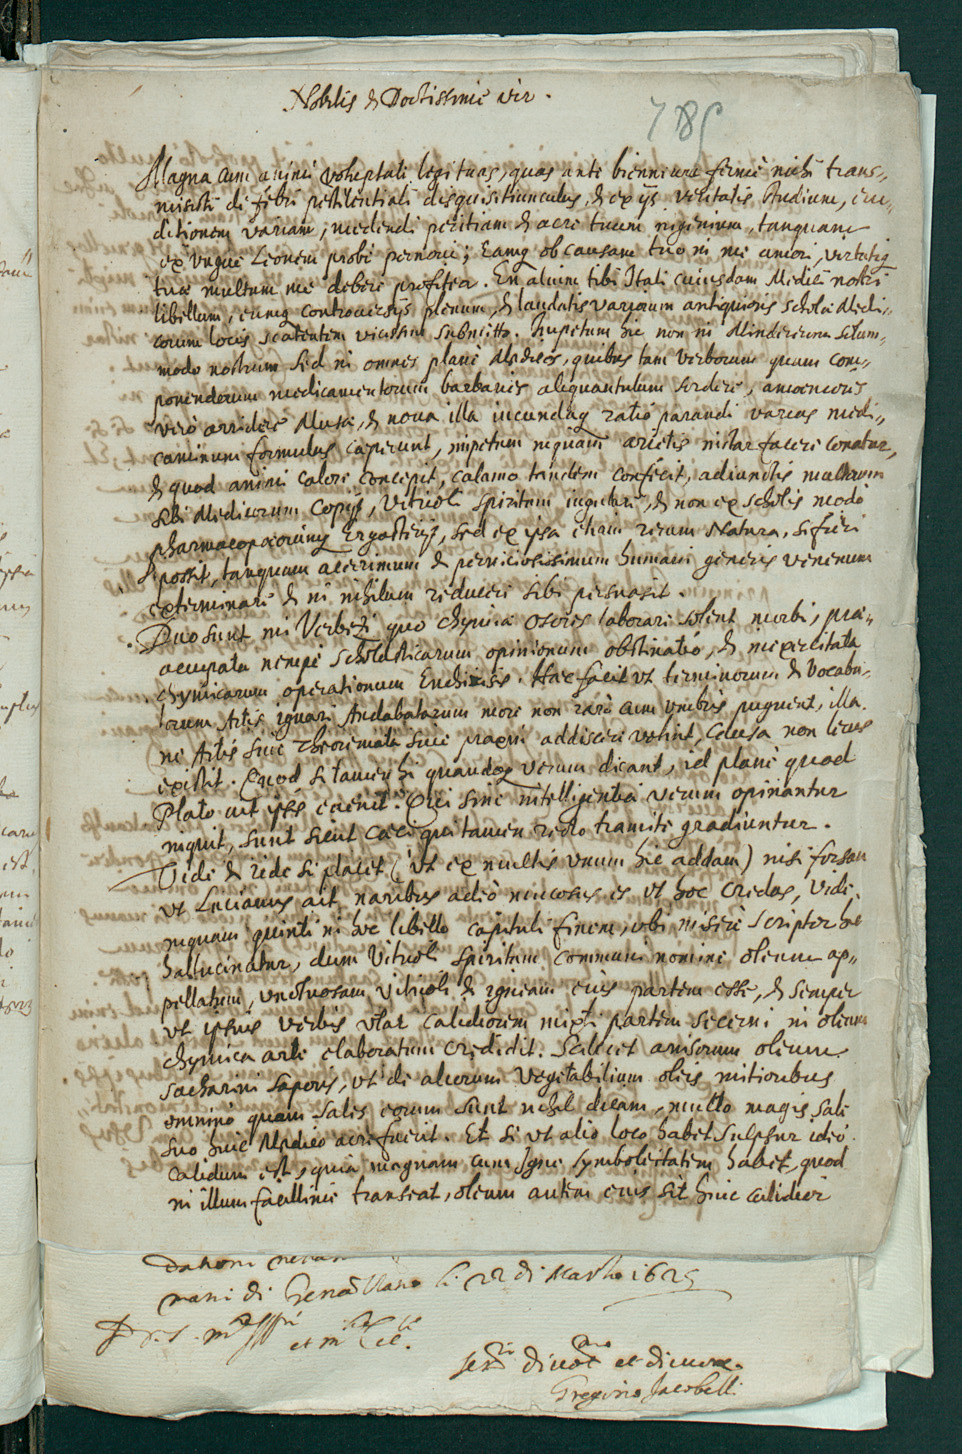 Nobilis & Doctissime vir.
785
Magna cum animi voluptate legi tuas, quas ante biennium ferme mihi trans-
misisti de febri pestilentiali disquisitiunculas, & ex ijs veritatis studium, eru-
ditionem variam, medendi peritiam & acre tuum ingenium, tanquam
ex ungue Leonem probe pernovi; Eamq ob causam tuo in me amori, virtutiq
tuae multum me debere profiteor. En alium tibi Itali cuiusdam Medici nostri
libellum, eumq controversijs plenum, & laudatis variorum antiquioris scholae Medi-
corum locis scatentem vicissim submitto. Impetum hic non in Mindererum solum-
modo nostrum sed in omnes plane Medicos, quibus tam verborum quam com-
ponendorum medicamentorum barbaries aliquantulum sordere, amoeniores
vero arridere Musae, & nova illa iucundaq ratio parandi varias medi-
caminum formulas caperunt, impetum inquam arietis instar facere conatur,
& quod animi calore concepit, calamo tandem conficit, adiunctis multarum
sibi Medicorum copijs, Vitrioli spiritum iugulare, & non ex scholis modo
pharmacopoeorumq Ergasterijs, sed ex ipsa etiam rerum Natura, si fieri
possit, tanquam acerrimum & perniciosissimum humani generis venenum
exterminare & in nihilum reducere sibi persuasit.
Duo sunt, mi Verbezi, quo chymiae osores laborare solent morbi, prae-
occupata nempe scholasticarum opinionum obstinatio, & inexercitata
chymicarum operationum Encheiresis. Haec facit ut terminorum & vocabu-
lorum Artis ignari Andabatarum more non raro cum umbris pugnent, illa
ne Artis sive theoremata sive praxin addiscere velint, causa non levis
existit. Quod si tamen hi quandoq verum dicant, id plane quod
Plato ait ipsis evenit: Qui sine intelligentia verum opinantur
inquit, sunt sicut caeci qui tamen recto tramite gradiuntur.
Vide & ride si placet (ut ex multis unum hic addam) nisi forsan
ut Lucianus ait, naribus adeo mucosus es ut hoc credas, vide
inquam quinti in hoc libello capituli finem, ubi misere scriptor hic
hallucinatur, dum Vitrioli spiritum communi nomine oleum ap-
pellatum, unctuosam vitrioli & igneam eius partem esse, & semper
ut ipsius verbis utar calidiorem mixti partem secerni in oleum
chymica arte elaboratum credidit. Scilicet anisorum oleum
sacharini saporis, ut de aliorum vegetabilium oleis mitioribus
omnino quam salis eorum sunt nihil dicam, multo magis sale
suo huic Medico acre fuerit. Et si ut alio loco habet sulphur ideo
calidum est, quia magnam cum Igne symboleitatem habet, quod
in illum facillime transeat, oleum autem eius sit hinc calidior
mani di li 22 di Marzo 1625
et
Gregorio Jacobelli